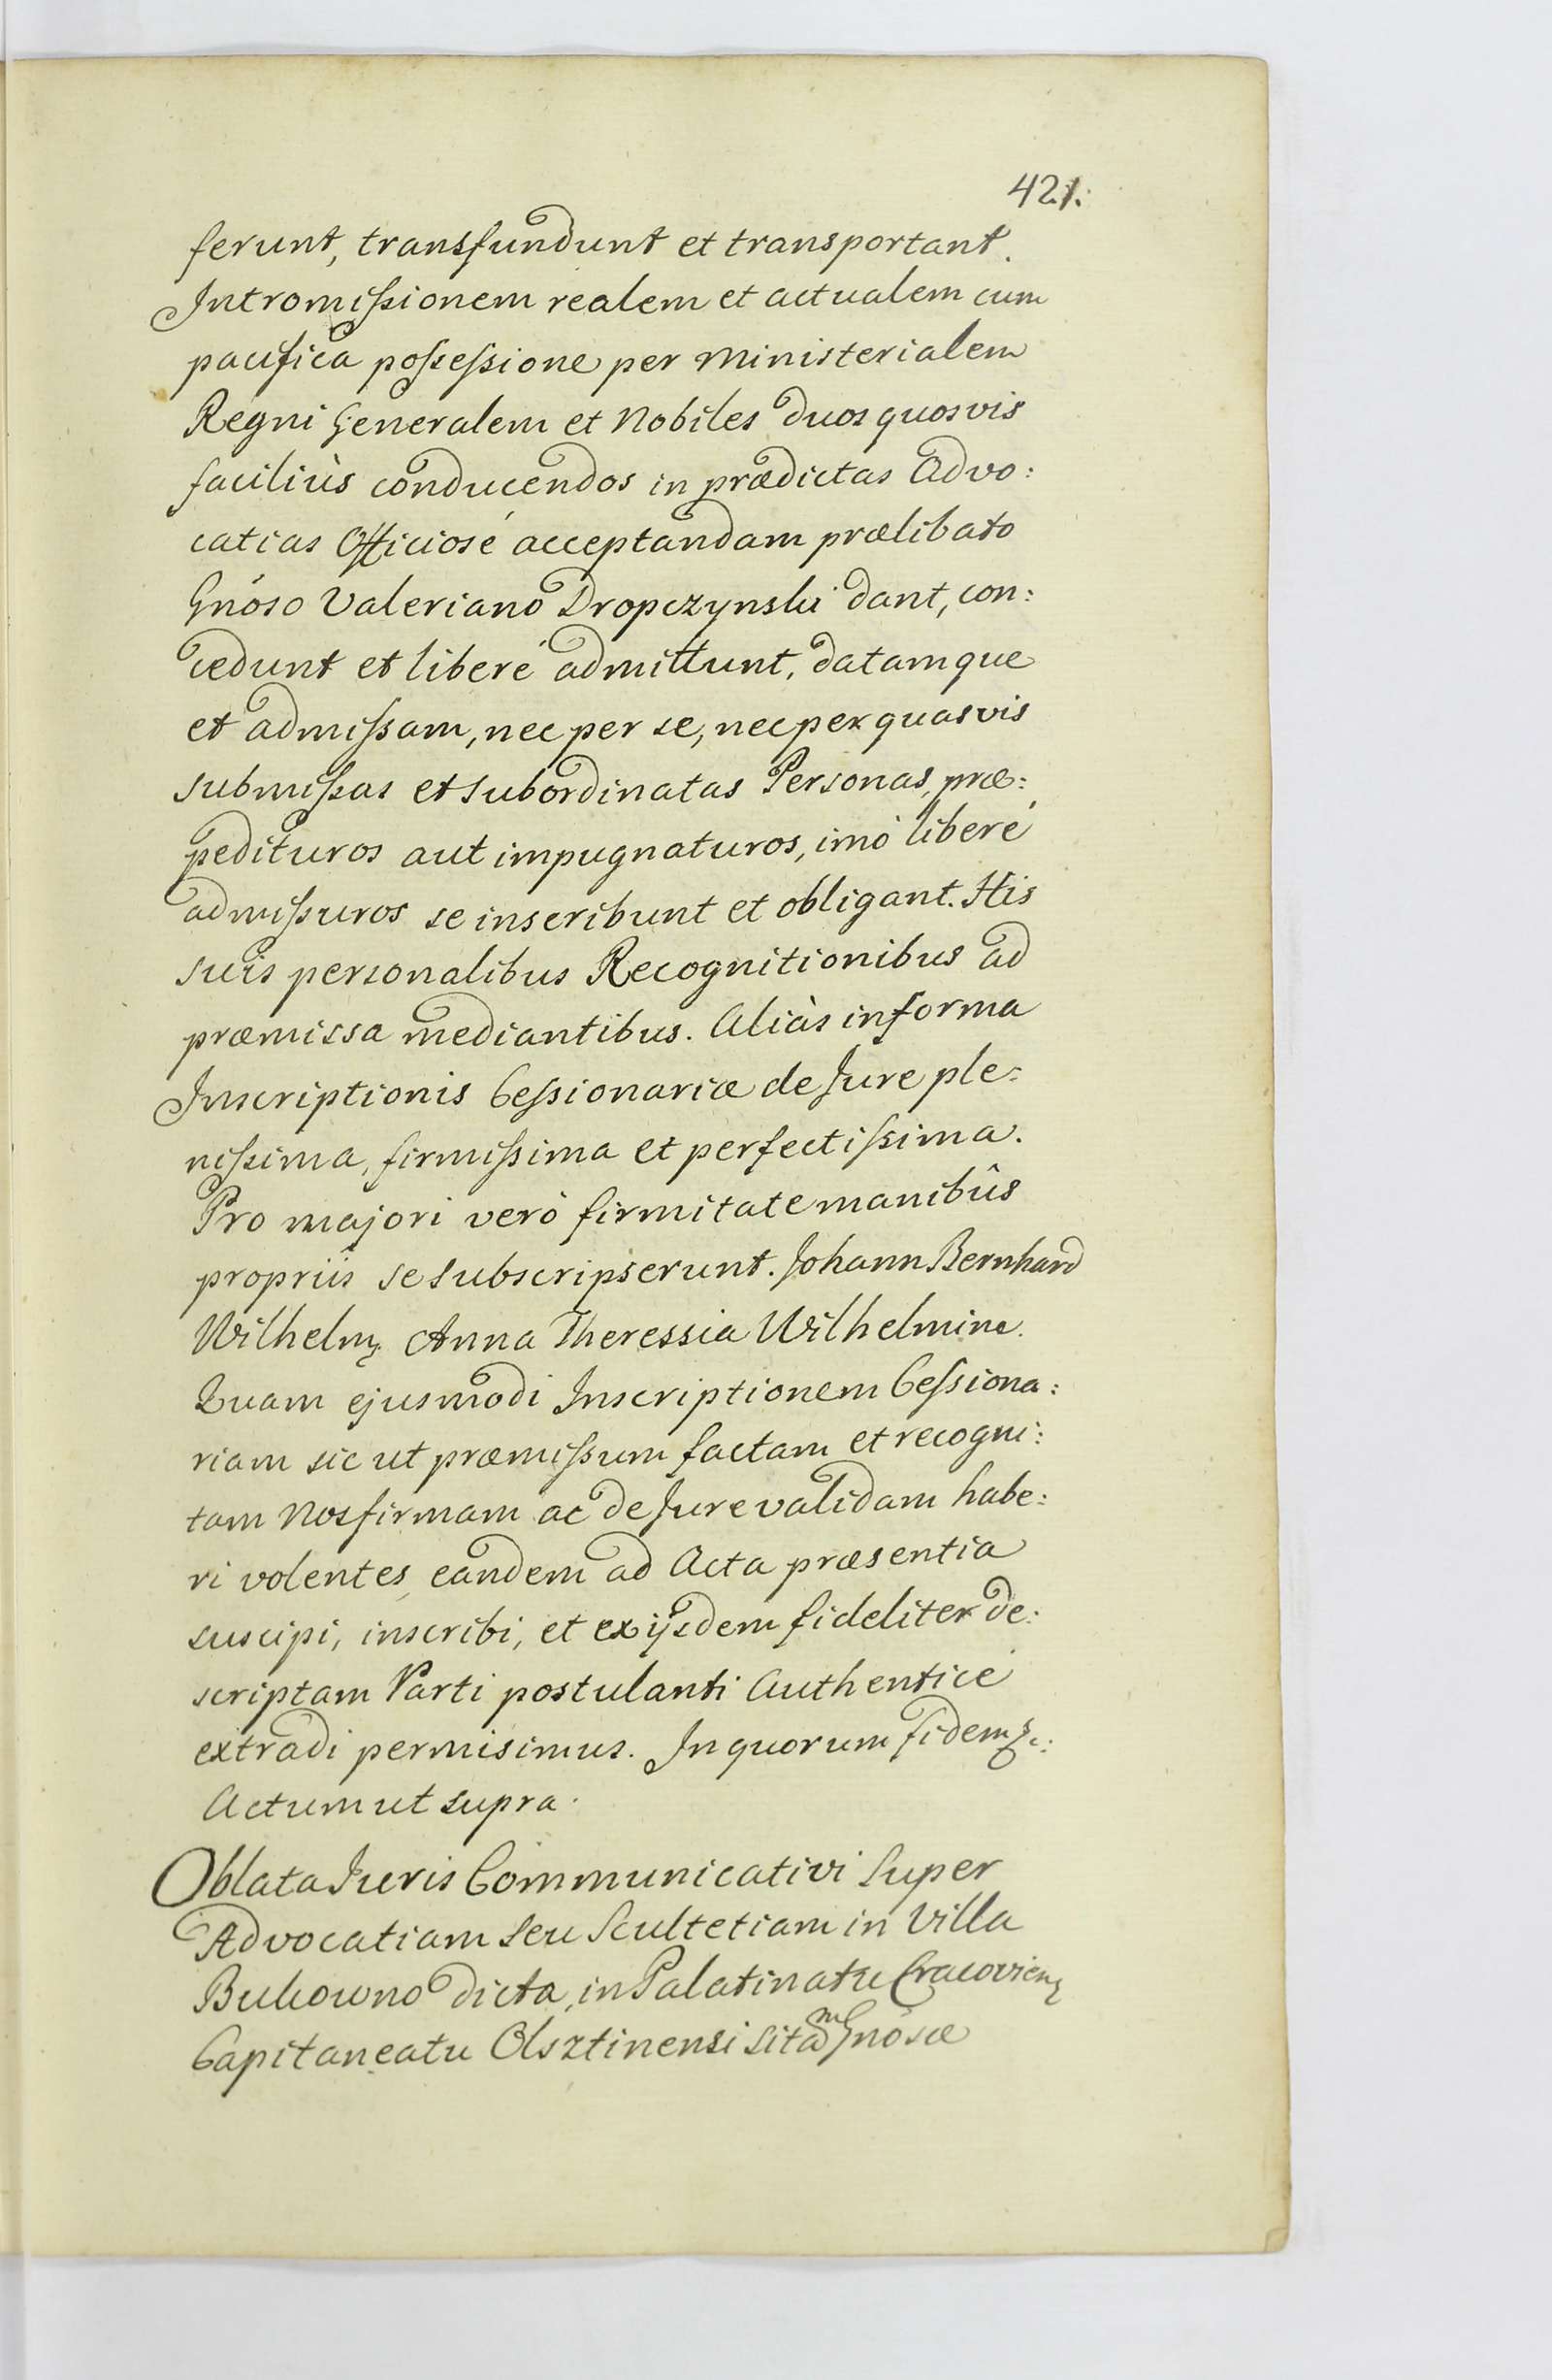 421.
ferunt, transfundunt et transportant.
Intromißionem realem et actualem cum
pacifica poßeßione per Ministerialem
Regni Generalem et Nobiles duos quosvis
faciliùs conducendos in prædictas Advo:
catias Officiosé acceptandam prælibato
Gnóso Valeriano Dropczynski dant, con:
cedunt et liberé admittunt, datamque
et admißam, nec per se, nec per quasvis
submißas et subordinatas Personas, præ:
pedituros aut impugnaturos, imò liberé
admißuros se inscribunt et obligant. His
suis personalibus Recognitionibus ad
præmissa mediantibus. Aliàs in forma
Inscriptionis Ceßionariæ de Jure ple:
nißima, firmißima et perfectißima.
Pro majori verò firmitate manibûs
propriis se subscripserunt. Johann Bernhard
Wilhelm. Anna Theressia Wilhelmine.
Quam ejusmodi Inscriptionem Ceßiona:
riam sic ut præmißum factam et recogni:
tam Nos firmam ac de Jure validam habe:
ri volentes, eandem ad Acta præsentia
suscipi, inscribi, et ex ijsdem fideliter de:
scriptam Parti postulanti Authenticé
extradi permisimus. In quorum fidem &c:
Actum ut supra.
Oblata Juris Communicativi super
Advocatiam seu Scultetiam in Villa
Bukowno dicta, in Palatinatu Cracovien
Capitaneatu Olsztinensi sitam Gnósæ